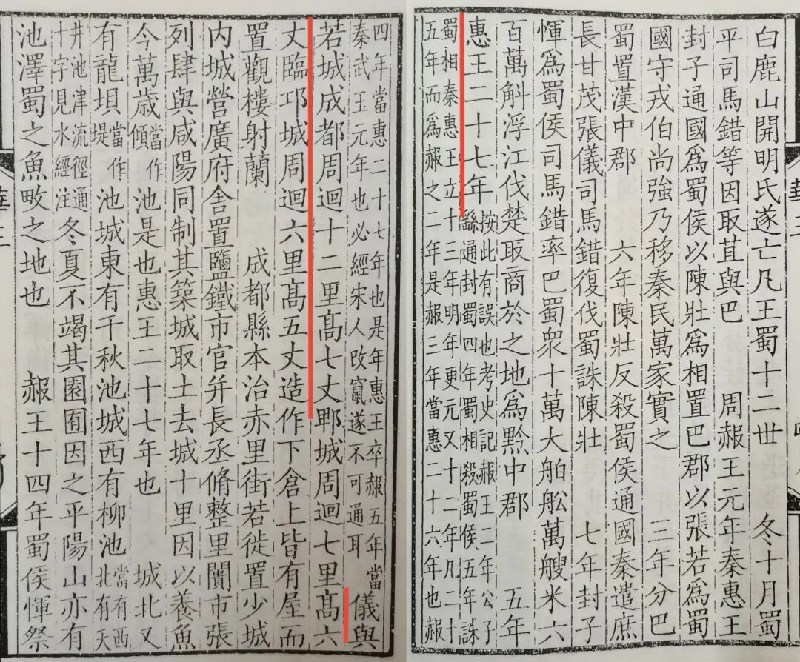 白鹿山開明氏遂亡凡王蜀十二世　冬十月蜀
平司馬錯等因取苴與巴　周赧王元年秦惠王
封子通國爲蜀侯以陳壯爲相置巴郡以張若爲蜀
國守戎伯尚強乃移秦民萬家實之　三年分巴
蜀置漢中郡　六年陳壯反殺蜀侯通國秦遣庶
長甘茂張儀司馬錯復伐蜀誅陳壯　七年封子
惲爲蜀侯司馬錯率巴蜀衆十萬大舶舩萬艘米六
百萬斛浮江伐楚取商於之地爲黔中郡　五年
惠王二十七年
按此有誤也考史記赧王二年公子
繇通封蜀四年蜀相殺蜀侯五年誅
蜀相秦惠王立十三年明年更元又十二年凡二十
五年而爲赧之二年是赧三年當惠二十六年也赧
四年當惠二十七年也是年惠王卒赧五年當
秦武王元年也必經宋人改竄遂不可通耳
儀與
若城成都周迴十二里高七丈郫城周迴七里高六
丈臨邛城周迴六里高五丈造作下倉上皆有屋而
置觀樓射蘭　成都縣本治赤里街若徙置少城
內城營廣府舍置鹽鐵市官并長丞脩整里闠市張
列肆與咸陽同制其築城取土去城十里因以養魚
今萬歲當作傾池是也惠王二十七年也　城北又
有龍垻當作堤池城東有千秋池城西有柳池當有西北有天
井池津流徑通十字見水經注冬夏不竭其園囿因之平陽山亦有
池澤蜀之魚畋之地也　赧王十四年蜀侯惲祭